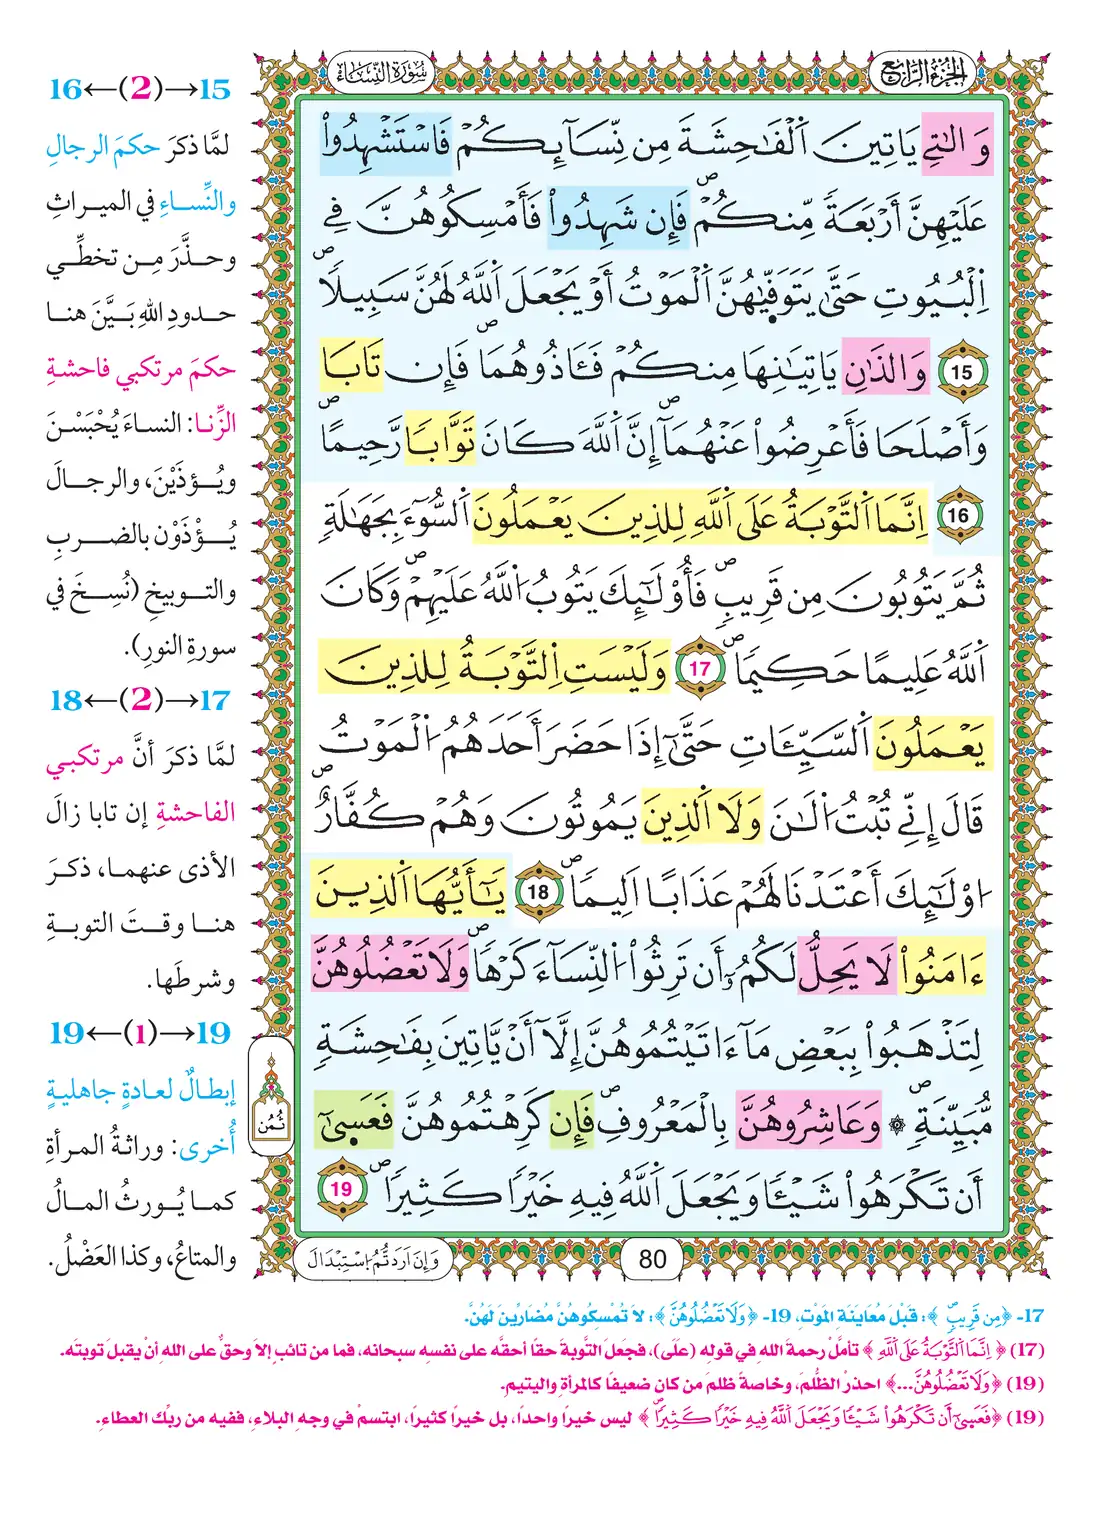 الجزء الرابع
سورة النساء
وَالَٰتِے يَاتِينَ اَ۬لْفَٰحِشَةَ مِن نِّسَآئِكُمْ فَاسْتَشْهِدُواْ
عَلَيْهِنَّ أَرْبَعَةٗ مِّنكُمْۖ فَإِن شَهِدُواْ فَأَمْسِكُوهُنَّ فِے
اِ۬لْبُيُوتِ حَتَّىٰ يَتَوَفَّيٰهُنَّ اَ۬لْمَوْتُ أَوْ يَجْعَلَ اَ۬للَّهُ لَهُنَّ سَبِيلاٗۖ
15 وَالذَٰنِ يَاتِيَٰنِهَا مِنكُمْ فَـَٔاذُوهُمَاۖ فَإِن تَابَا
وَأَصْلَحَا فَأَعْرِضُواْ عَنْهُمَآۖ إِنَّ اَ۬للَّهَ كَانَ تَوَّاباٗ رَّحِيماًۖ
16 اِنَّمَا اَ۬لتَّوْبَةُ عَلَى اَ۬للَّهِ لِلذِينَ يَعْمَلُونَ اَ۬لسُّوٓءَ بِجَهَٰلَةٖ
ثُمَّ يَتُوبُونَ مِن قَرِيبٖۖ فَأُوْلَٰٓئِكَ يَتُوبُ اُ۬للَّهُ عَلَيْهِمْۖ وَكَانَ
اَ۬للَّهُ عَلِيماً حَكِيماٗۖ 17 وَلَيْسَتِ اِ۬لتَّوْبَةُ لِلذِينَ
يَعْمَلُونَ اَ۬لسَّيِّـَٔاتِ حَتَّىٰٓ إِذَا حَضَرَ أَحَدَهُمُ اُ۬لْمَوْتُ
قَالَ إِنِّے تُبْتُ اُ۬لَٰنَ وَلَا اَ۬لذِينَ يَمُوتُونَ وَهُمْ كُفَّارٌۖ
اُوْلَٰٓئِكَ أَعْتَدْنَا لَهُمْ عَذَاباً اَلِيماٗۖ 18 يَٰٓأَيُّهَا اَ۬لذِينَ
ءَامَنُواْ لَا يَحِلُّ لَكُمُۥٓ أَن تَرِثُواْ اُ۬لنِّسَآءَ كَرْهاٗۖ وَلَا تَعْضُلُوهُنَّ
لِتَذْهَبُواْ بِبَعْضِ مَآ ءَاتَيْتُمُوهُنَّ إِلَّآ أَنْ يَّاتِينَ بِفَٰحِشَةٖ
مُّبَيِّنَةٖۖ ۞ وَعَاشِرُوهُنَّ بِالْمَعْرُوفِۖ فَإِن كَرِهْتُمُوهُنَّ فَعَس۪ىٰٓ
أَن تَكْرَهُواْ شَيْـٔاٗ وَيَجْعَلَ اَ۬للَّهُ فِيهِ خَيْراٗ كَثِيراٗۖ 19
ثُمُن
80
وَإِنَ اَرَدتُّمُ اُ۪سْتِبْدَالَ
15→(2)←16
لمَّا ذكرَ حكمَ الرجالِ
والنِّساءِ في الميراثِ
وحذَّرَ مِن تخطِّي
حدودِ اللهِ بَيَّنَ هنا
حكمَ مرتكبي فاحشةِ
الزِّنا: النساءَ يُحْبَسْنَ
ويُؤذَيْنَ، والرجالَ
يُؤْذَوْن بالضربِ
والتوبيخِ (نُسِخَ في
سورةِ النورِ).
17→(2)←18
لمَّا ذكرَ أنَّ مرتكبي
الفاحشةِ إن تابا زالَ
الأذى عنهما، ذكرَ
هنا وقتَ التوبةِ
وشرطَها.
19→(1)←19
إبطالٌ لعادةٍ جاهليةٍ
أُخرى: وراثةُ المرأةِ
كما يُورثُ المالُ
والمتاعُ، وكذا العَضْلُ.
17- ﴿مِن قَرِيبٖۖ﴾: قَبْلَ مُعَايَنَةِ المَوْتِ، 19- ﴿وَلَا تَعْضُلُوهُنَّ﴾: لَا تُمْسِكُوهُنَّ مُضَارِّينَ لَهُنَّ.
(17) ﴿اِنَّمَا اَ۬لتَّوْبَةُ عَلَى اَ۬للَّهِ﴾ تأملْ رحمةَ اللهِ في قولِه (على)، فجعلَ التَّوبةَ حقا أحقَّه على نفسِه سبحانه، فما من تائبٍ إلا وحقٌّ على اللهِ أنْ يقبلَ توبتَه.
(19) ﴿وَلَا تَعْضُلُوهُنَّ...﴾ احذرْ الظُّلمَ، وخاصةً ظلمَ من كان ضعيفًا كالمرأةِ واليتيمِ.
(19) ﴿فَعَس۪ىٰٓ أَن تَكْرَهُواْ شَيْـٔاٗ وَيَجْعَلَ اَ۬للَّهُ فِيهِ خَيْراٗ كَثِيراٗۖ﴾ ليس خيرًا واحدًا، بل خيرًا كثيرًا، ابتسمْ في وجهِ البلاءِ، ففيه من ربِّك العطاءِ.